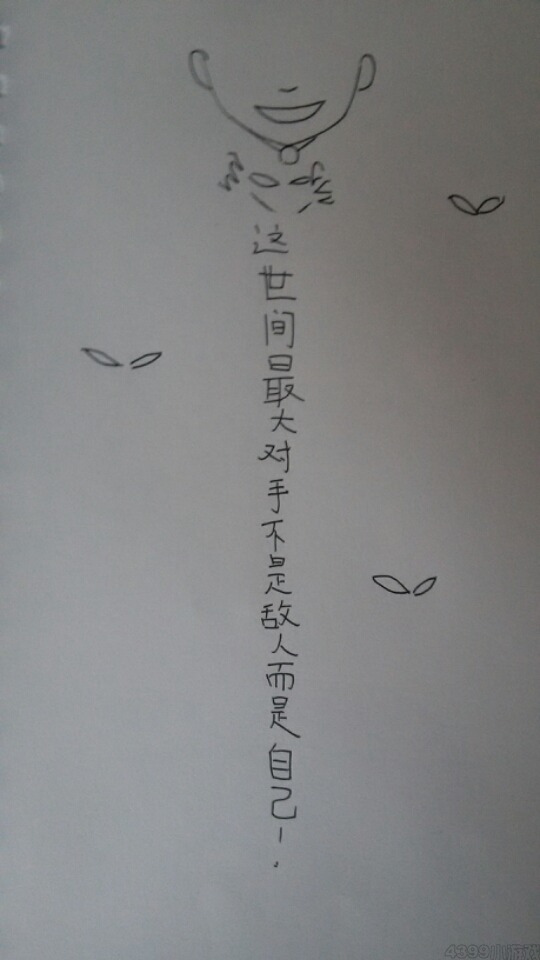 这世间最大对手不是敌人而是自己！
4399小游戏